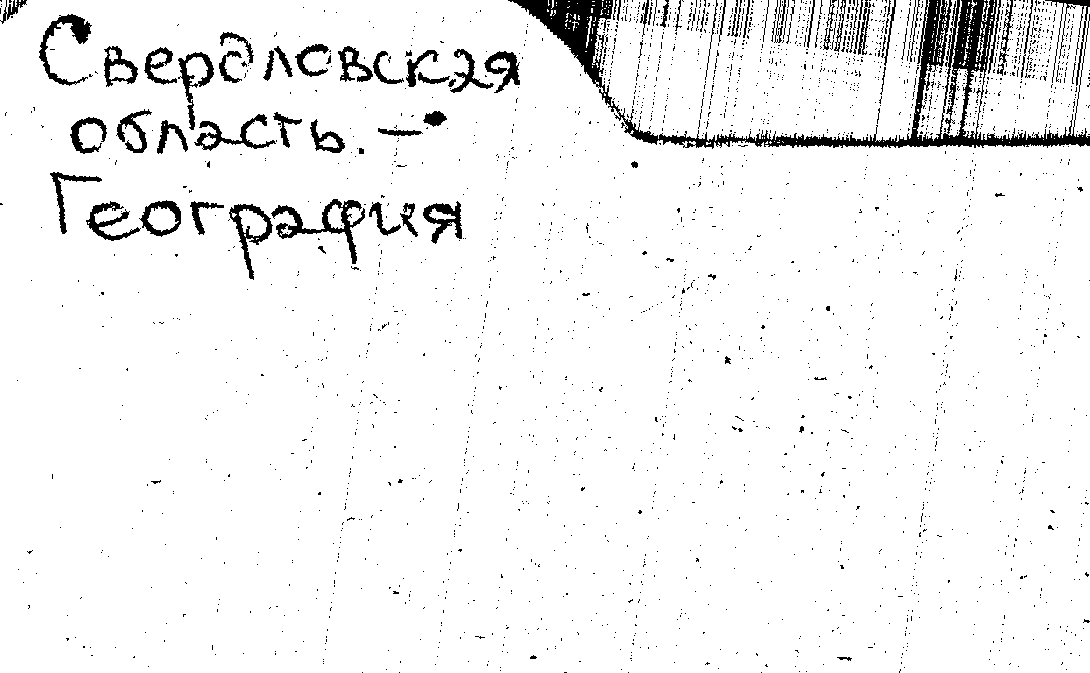 Свердловская
область. —
География